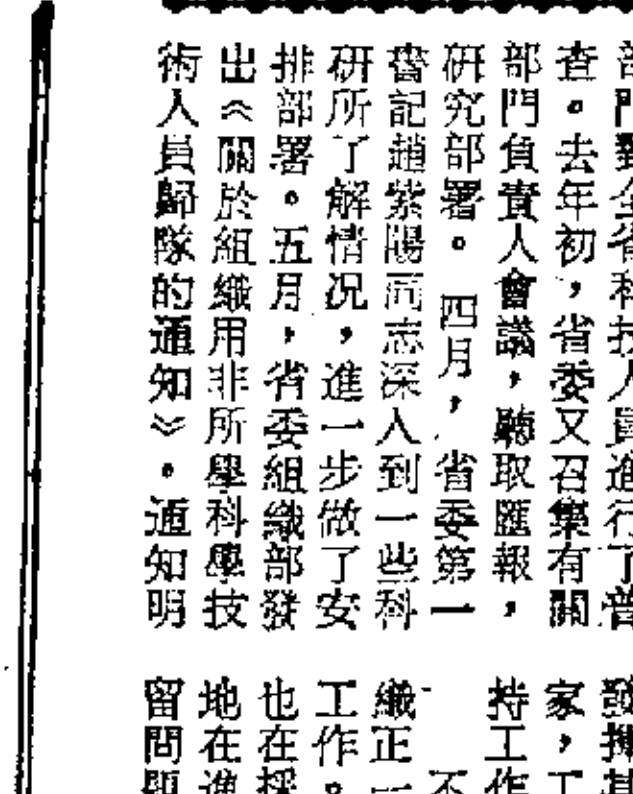 部門對全省科技人員進行了普
查。去年初,省委又召集有關
部門負責人會議,聽取匯報,
研究部署。四月,省委第一
書記趙紫陽同志深入到一些科
研所了解情况,進一步做了安
排部署。五月,省委組織部發
出《關於組織用非所學科學技
術人員歸隊的通知》。通知明
發揮其
家,工
持工作
不
織正一
工作。
也在採
地在進
留問題